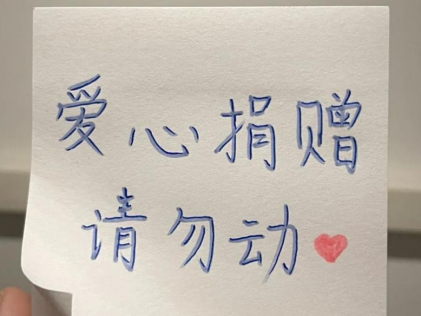 爱心捐赠
请勿动